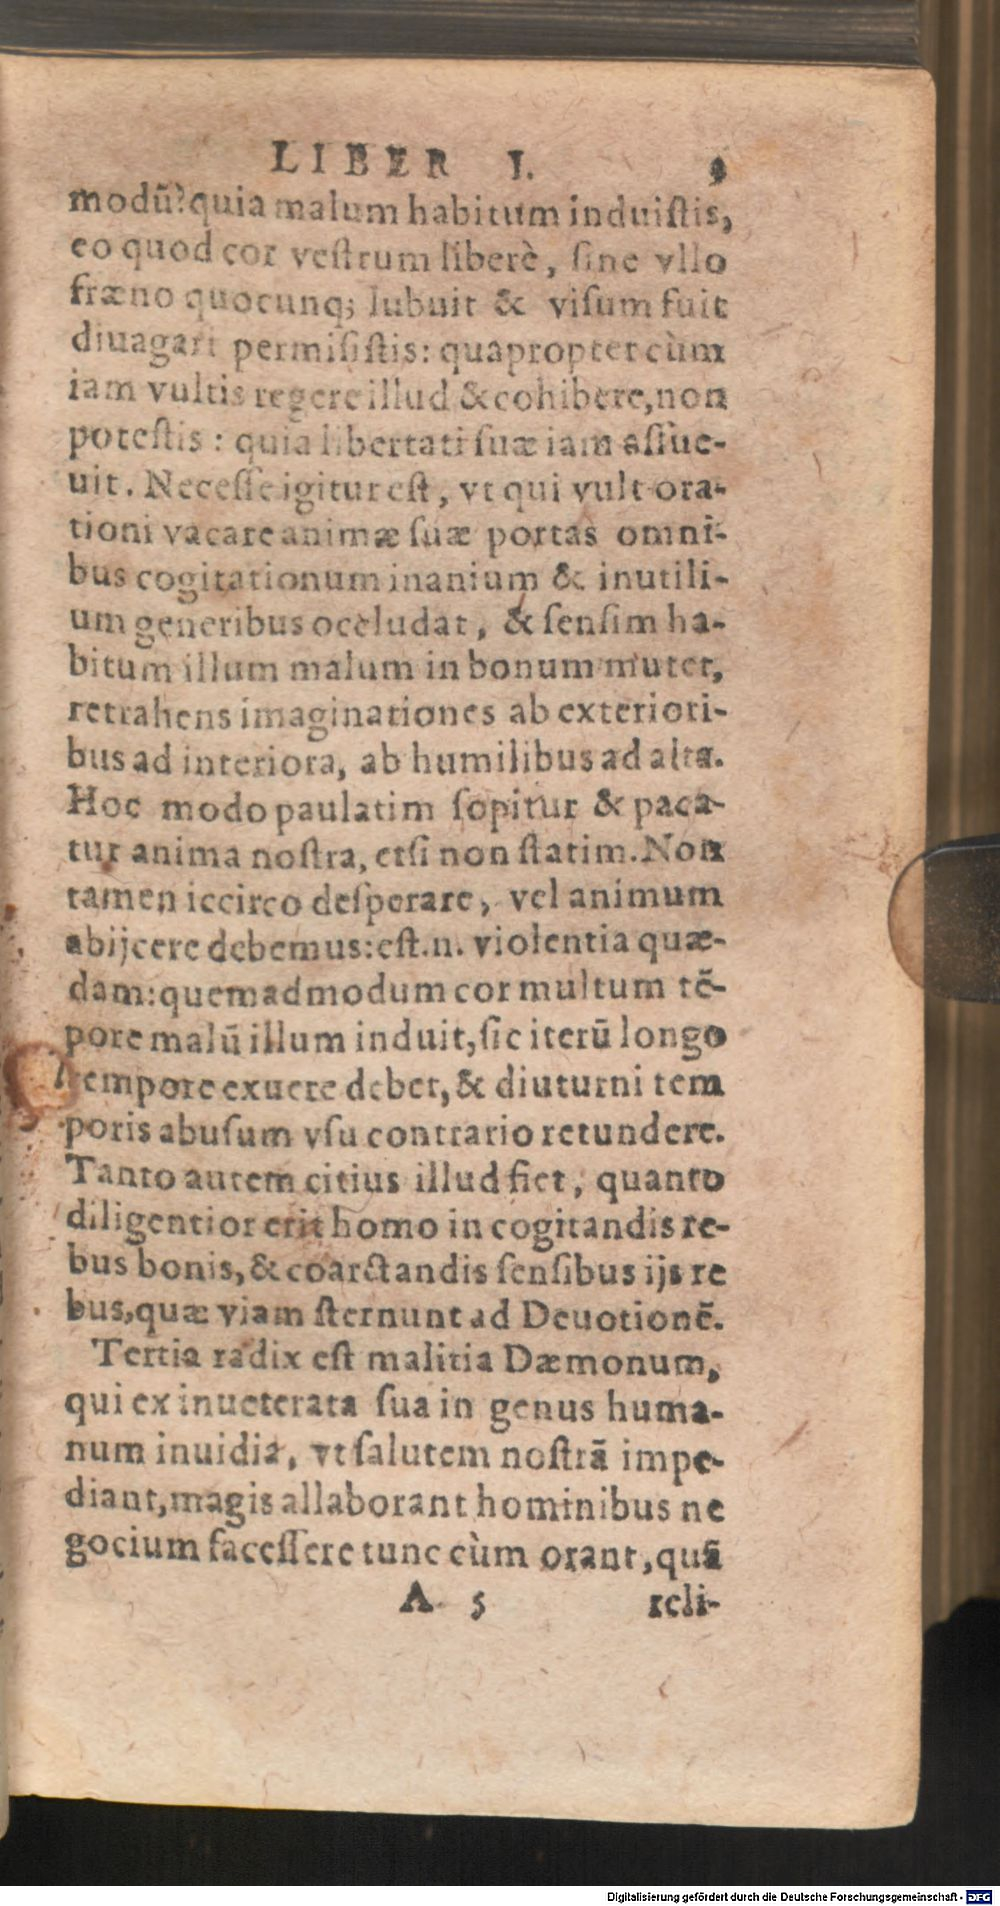 LIBER I. 9
modũ? quia malum habitum induiſtis,
eo quod cor veſtrum liberè, ſine vllo
fræno quocunq; lubuit & viſum fuit
diuagari permiſiſtis: quapropter cùm
iam vultis regere illud & cohibere, non
poteſtis: quia libertati ſuæ iam aſſue-
uit. Neceſſe igitur eſt, vt qui vult ora-
tioni vacare animæ ſuæ portas omni-
bus cogitationum inanium & inutili-
um generibus occludat, & ſenſim ha-
bitum illum malum in bonum mutet,
retrahens imaginationes ab exteriori-
bus ad interiora, ab humilibus ad alta.
Hoc modo paulatim ſopitur & paca-
tur anima noſtra, etſi non ſtatim. Non
tamen iccirco deſperare, vel animum
abijcere debemus: eſt.n. violentia quæ-
dam: quemadmodum cor multum tẽ-
pore malũ illum induit, ſic iterũ longo
tempore exuere debet, & diuturni tem
poris abuſum vſu contrario retundere.
Tanto autem citius illud fiet, quanto
diligentior erit homo in cogitandis re-
bus bonis, & coarctandis ſenſibus ijs re
bus, quæ viam ſternunt ad Deuotionẽ.
Tertia radix eſt malitia Dæmonum,
qui ex inueterata ſua in genus huma-
num inuidia, vt ſalutem noſtrã impe-
diant, magis allaborant hominibus ne
gocium faceſſere tunc cùm orant, quã
A 5 reli-
Digitalisierung gefördert durch die Deutsche Forschungsgemeinschaft - DFG